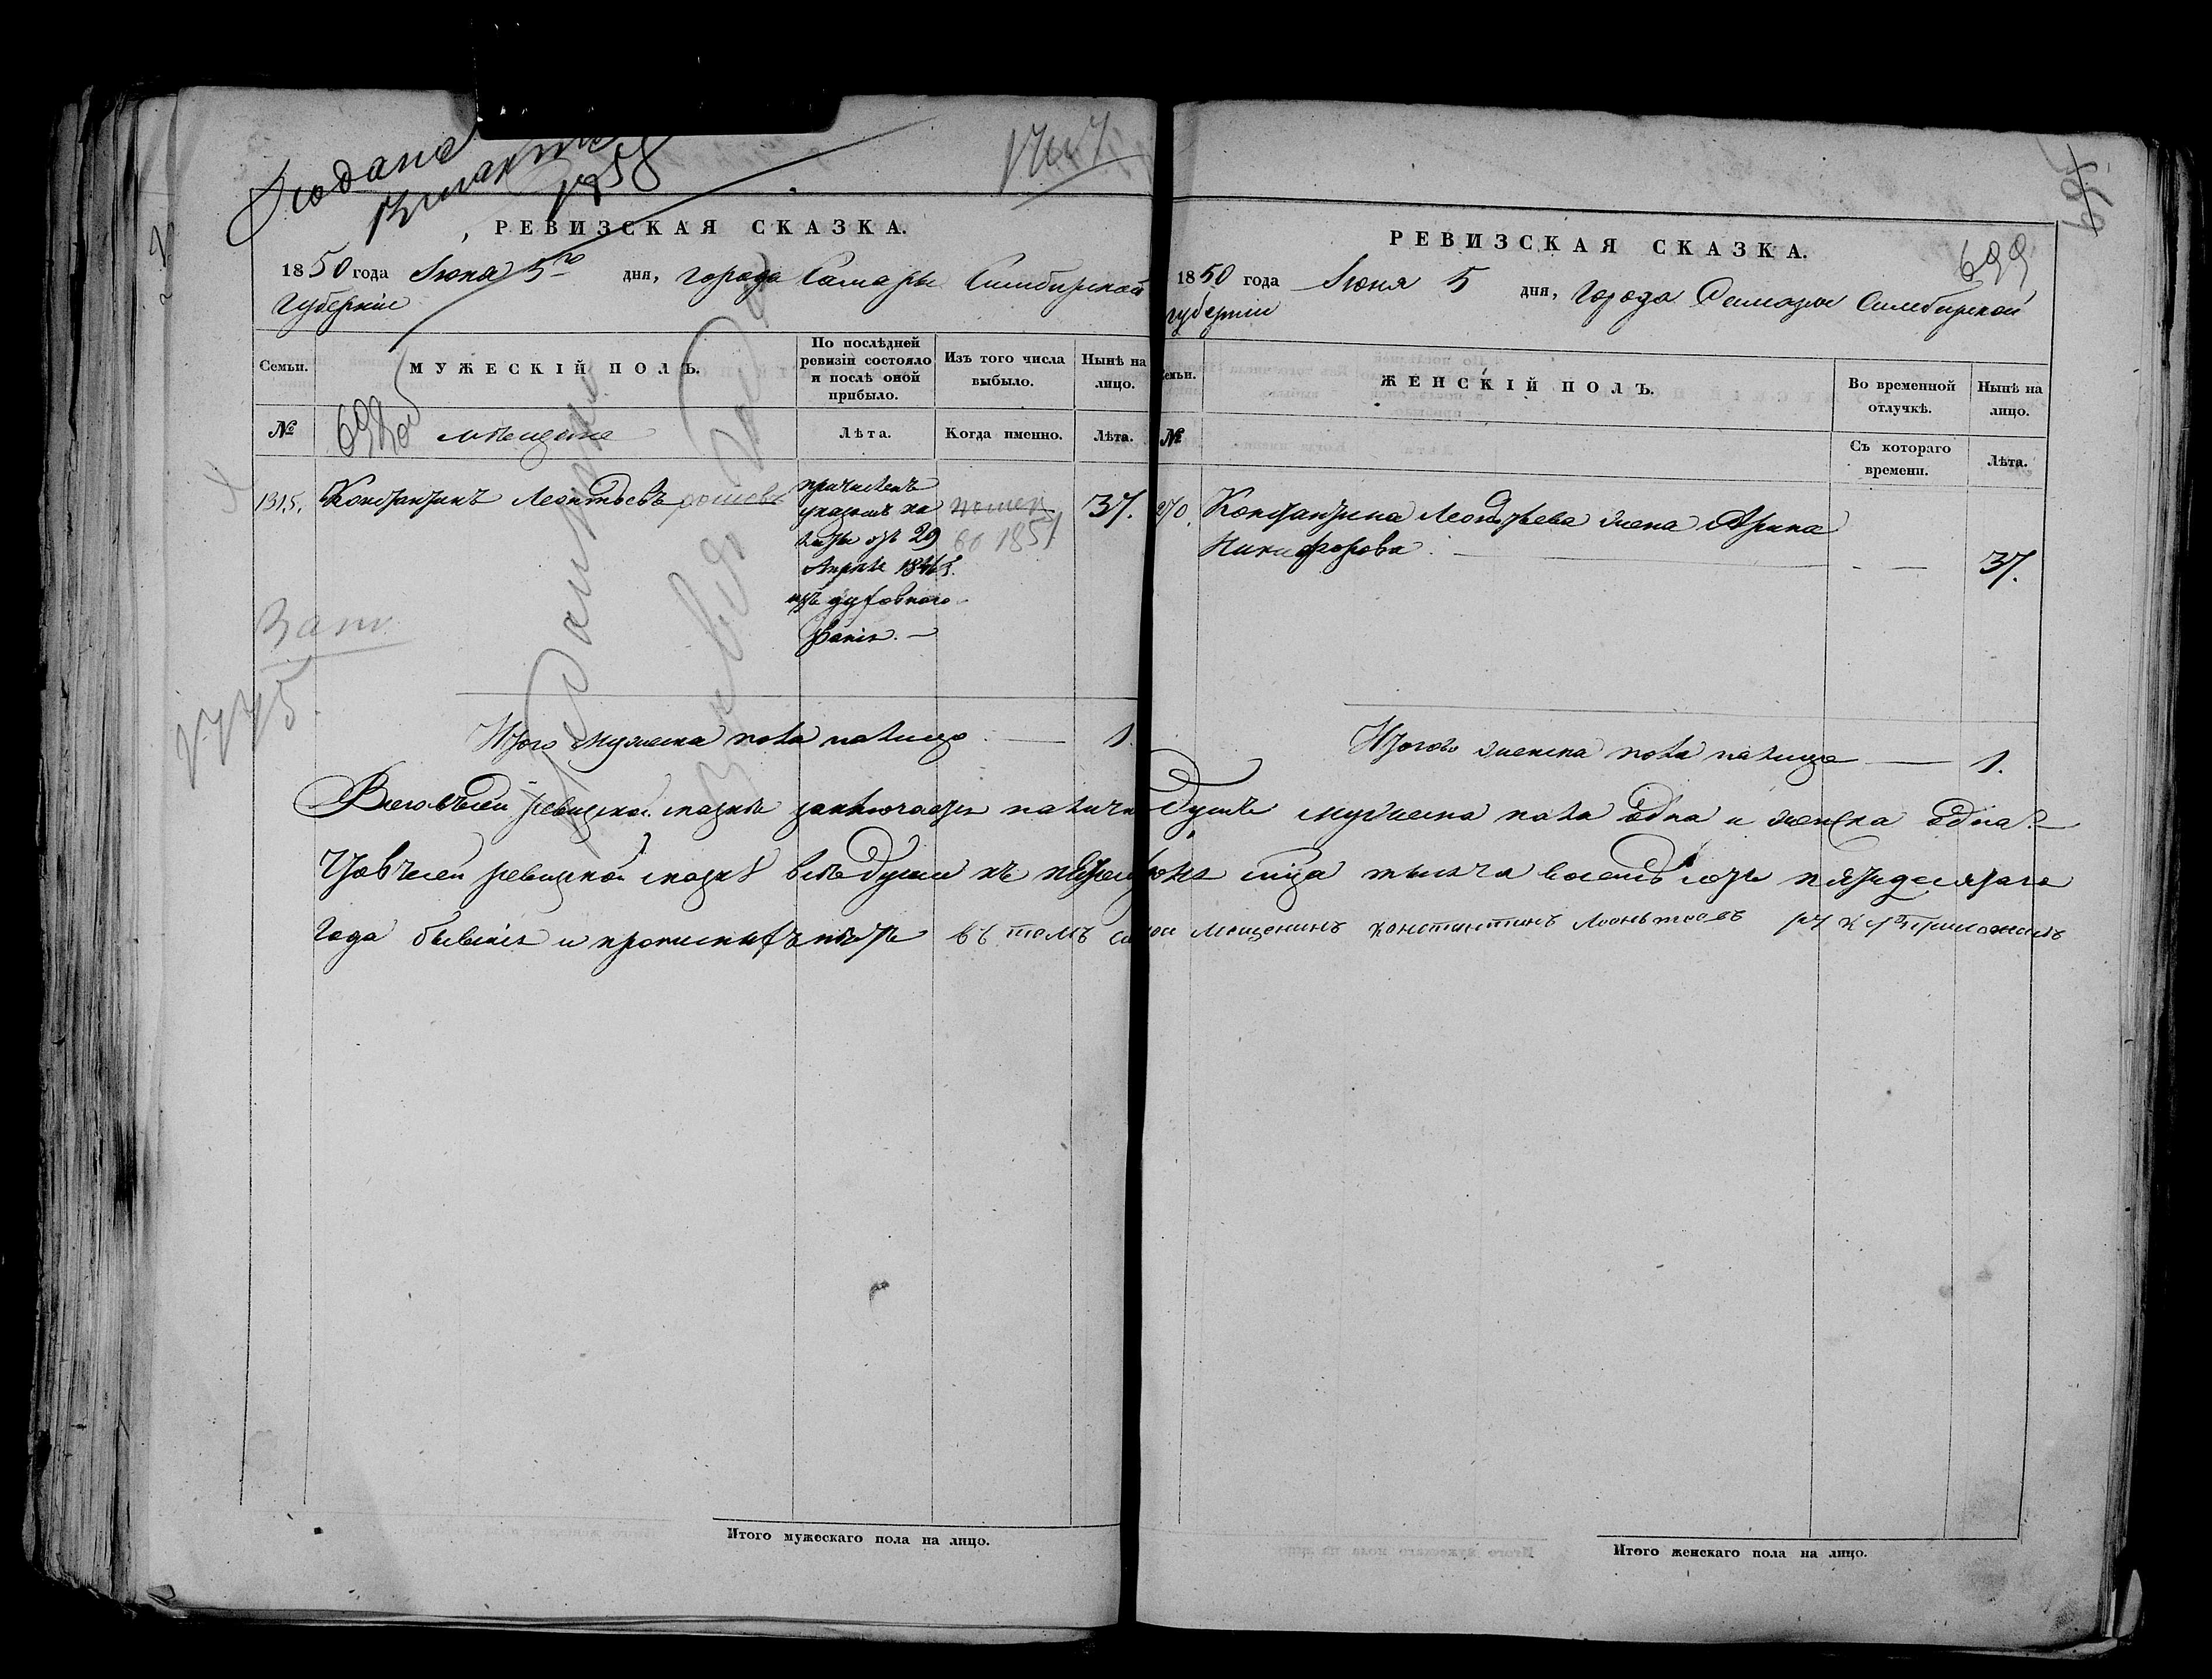 Подана
1858
РЕВИЗСКАЯ СКАЗКА.
1850 года Июня 5го дня, города Самары Симбирской
губернiи
Семьи.
МУЖЕСКІЙ ПОЛЪ.
По послѣдней ревизіи состояло и послѣ оной прибыло.
Изъ того числа выбыло.
Нынѣ на лицо.
№
мѣщане
Лѣта.
Когда именно.
Лѣта.
1315.
Константинъ Леонтьевъ
причисленъ
указомъ па
латы отъ 29
Апреля
изъ духовнаго
званія. —
во 1851
37.
1775.
Итого мужеска пола налицо — 1.
РЕВИЗСКАЯ СКАЗКА.
699
1850 года Июня 5 дня, города Самары Симбирской
губернiи
Семьи.
ЖЕНСКІЙ ПОЛЪ.
Во временной отлучкѣ.
Нынѣ на лицо.
№
Съ котораго времени.
Лѣта.
Константина Леонтьева жена Арина
Никифорова. — — 37.
Итого женска пола налицо — 1.
Всего въ сей ревизской сказкѣ заключается налично душъ мужеска пола одна и женска одна. —
Что въ сей ревизской сказкѣ все души къ июня мца тысяча восемь сотъ пятидесятаго
года бывшiя и прописныхъ нетъ въ томъ самарской мещенинъ константинъ леоньтеевъ приложилъ
Итого мужескаго пола на лицо.
Итого женскаго пола на лицо.